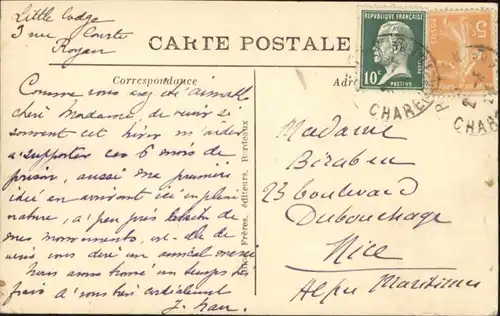 Little Lodge
3 rue Courte
Royan
CARTE POSTALE
Correspondance
RÉPUBLIQUE FRANÇAISE
10c
PASTEUR
5c
CHARE
CHAR
Comme vous avez été aimable
chère Madame, de venir si
souvent cet hiver m'aider
a supporter ces 6 mois de
prison, aussi ma première
idée en arrivant ici en pleine
nature, a peu près
de
mes mouvements, est-elle de
vous dire un amical merci
Nous avons trouvé un temps très
frais a vous très cordialement
Frères, éditeurs, Bordeaux
Madame
Biraben
23 boulevard
Dubouchage
Nice
Alpes Maritimes